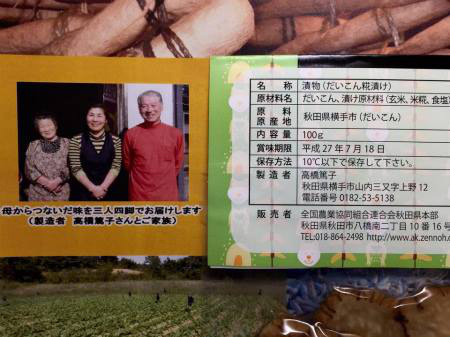 母からつないだ味を三人四脚でお届けします
(製造者 高橋篤子さんとご家族)
名称 漬物(だいこん糀漬け)
原材料名 だいこん、漬け原材料(玄米、米糀、食塩)
原料原産地 秋田県横手市(だいこん)
内容量 100g
賞味期限 平成27年7月18日
保存方法 10℃以下で保存して下さい。
製造者 高橋篤子
秋田県横手市山内三又字上野12
電話番号 0182-53-5138
販売者 全国農業協同組合連合会秋田県本部
秋田県秋田市八橋南二丁目10番16号
TEL:018-864-2498 http://www.ak.zennoh.